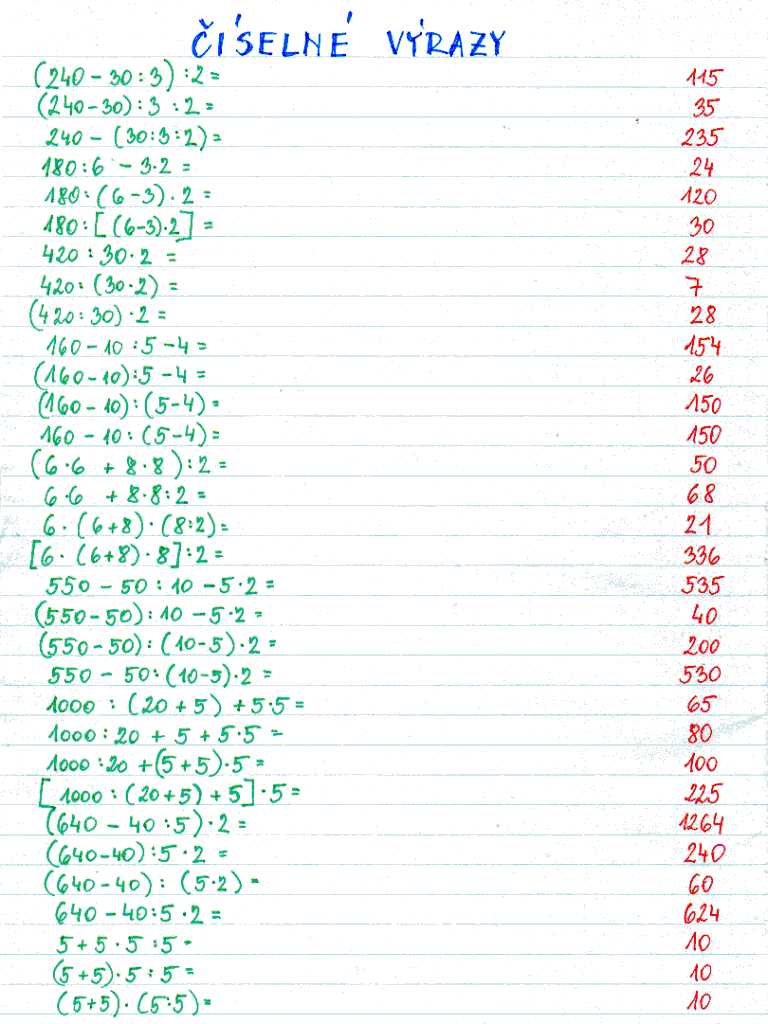 ČÍSELNÉ VÝRAZY
(240 - 30 : 3) : 2 = 115
(240 - 30) : 3 : 2 = 35
240 - (30 : 3 : 2) = 235
180 : 6 - 3 · 2 = 24
180 : (6 - 3) · 2 = 120
180 : [(6 - 3) · 2] = 30
420 : 30 · 2 = 28
420 : (30 · 2) = 7
(420 : 30) · 2 = 28
160 - 10 : 5 - 4 = 154
(160 - 10) : 5 - 4 = 26
(160 - 10) : (5 - 4) = 150
160 - 10 : (5 - 4) = 150
(6 · 6 + 8 · 8) : 2 = 50
6 · 6 + 8 · 8 : 2 = 68
6 · (6 + 8) · (8 : 2) = 21
[6 · (6 + 8) · 8] : 2 = 336
550 - 50 : 10 - 5 · 2 = 535
(550 - 50) : 10 - 5 · 2 = 40
(550 - 50) : (10 - 5) · 2 = 200
550 - 50 : (10 - 5) · 2 = 530
1000 : (20 + 5) + 5 · 5 = 65
1000 : 20 + 5 + 5 · 5 = 80
1000 : 20 + (5 + 5) · 5 = 100
[1000 : (20 + 5) + 5] · 5 = 225
(640 - 40 : 5) · 2 = 1264
(640 - 40) : 5 · 2 = 240
(640 - 40) : (5 · 2) = 60
640 - 40 : 5 · 2 = 624
5 + 5 · 5 : 5 = 10
(5 + 5) · 5 : 5 = 10
(5 + 5) · (5 : 5) = 10